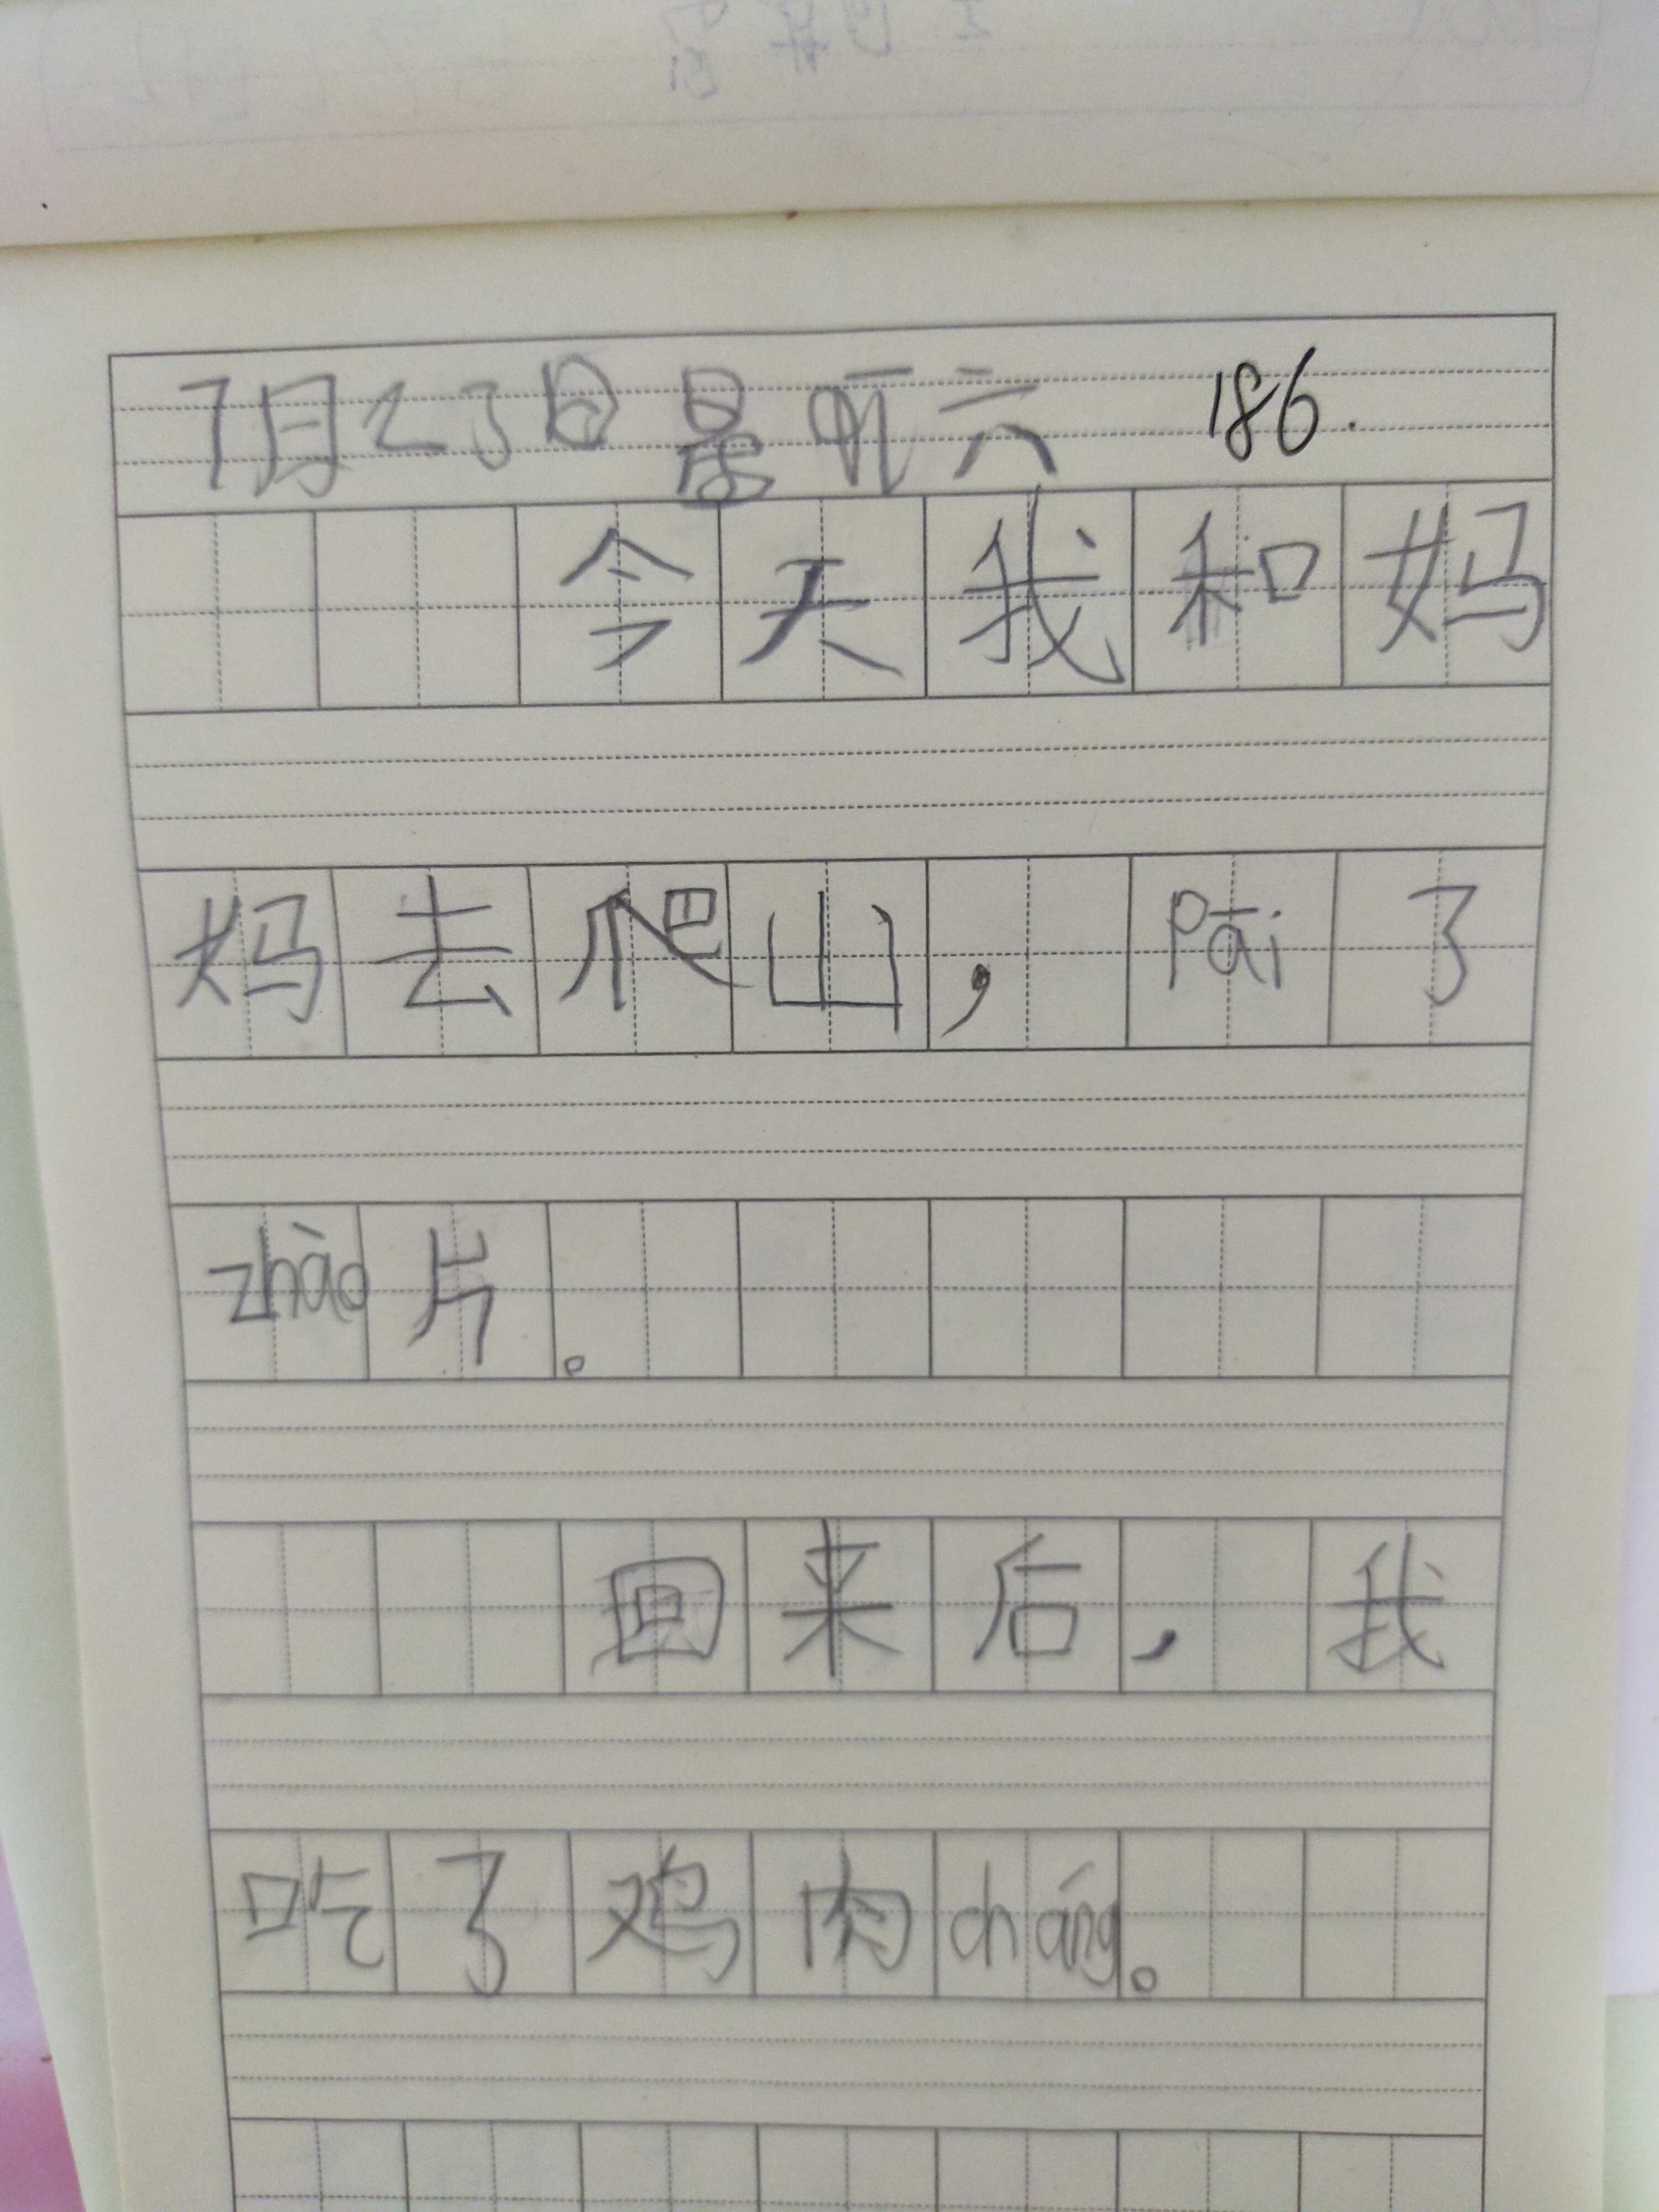 7月23日 星期六 186.
今天我和妈
妈去爬山，pāi了
zhào片。
回来后，我
吃了鸡肉cháng。